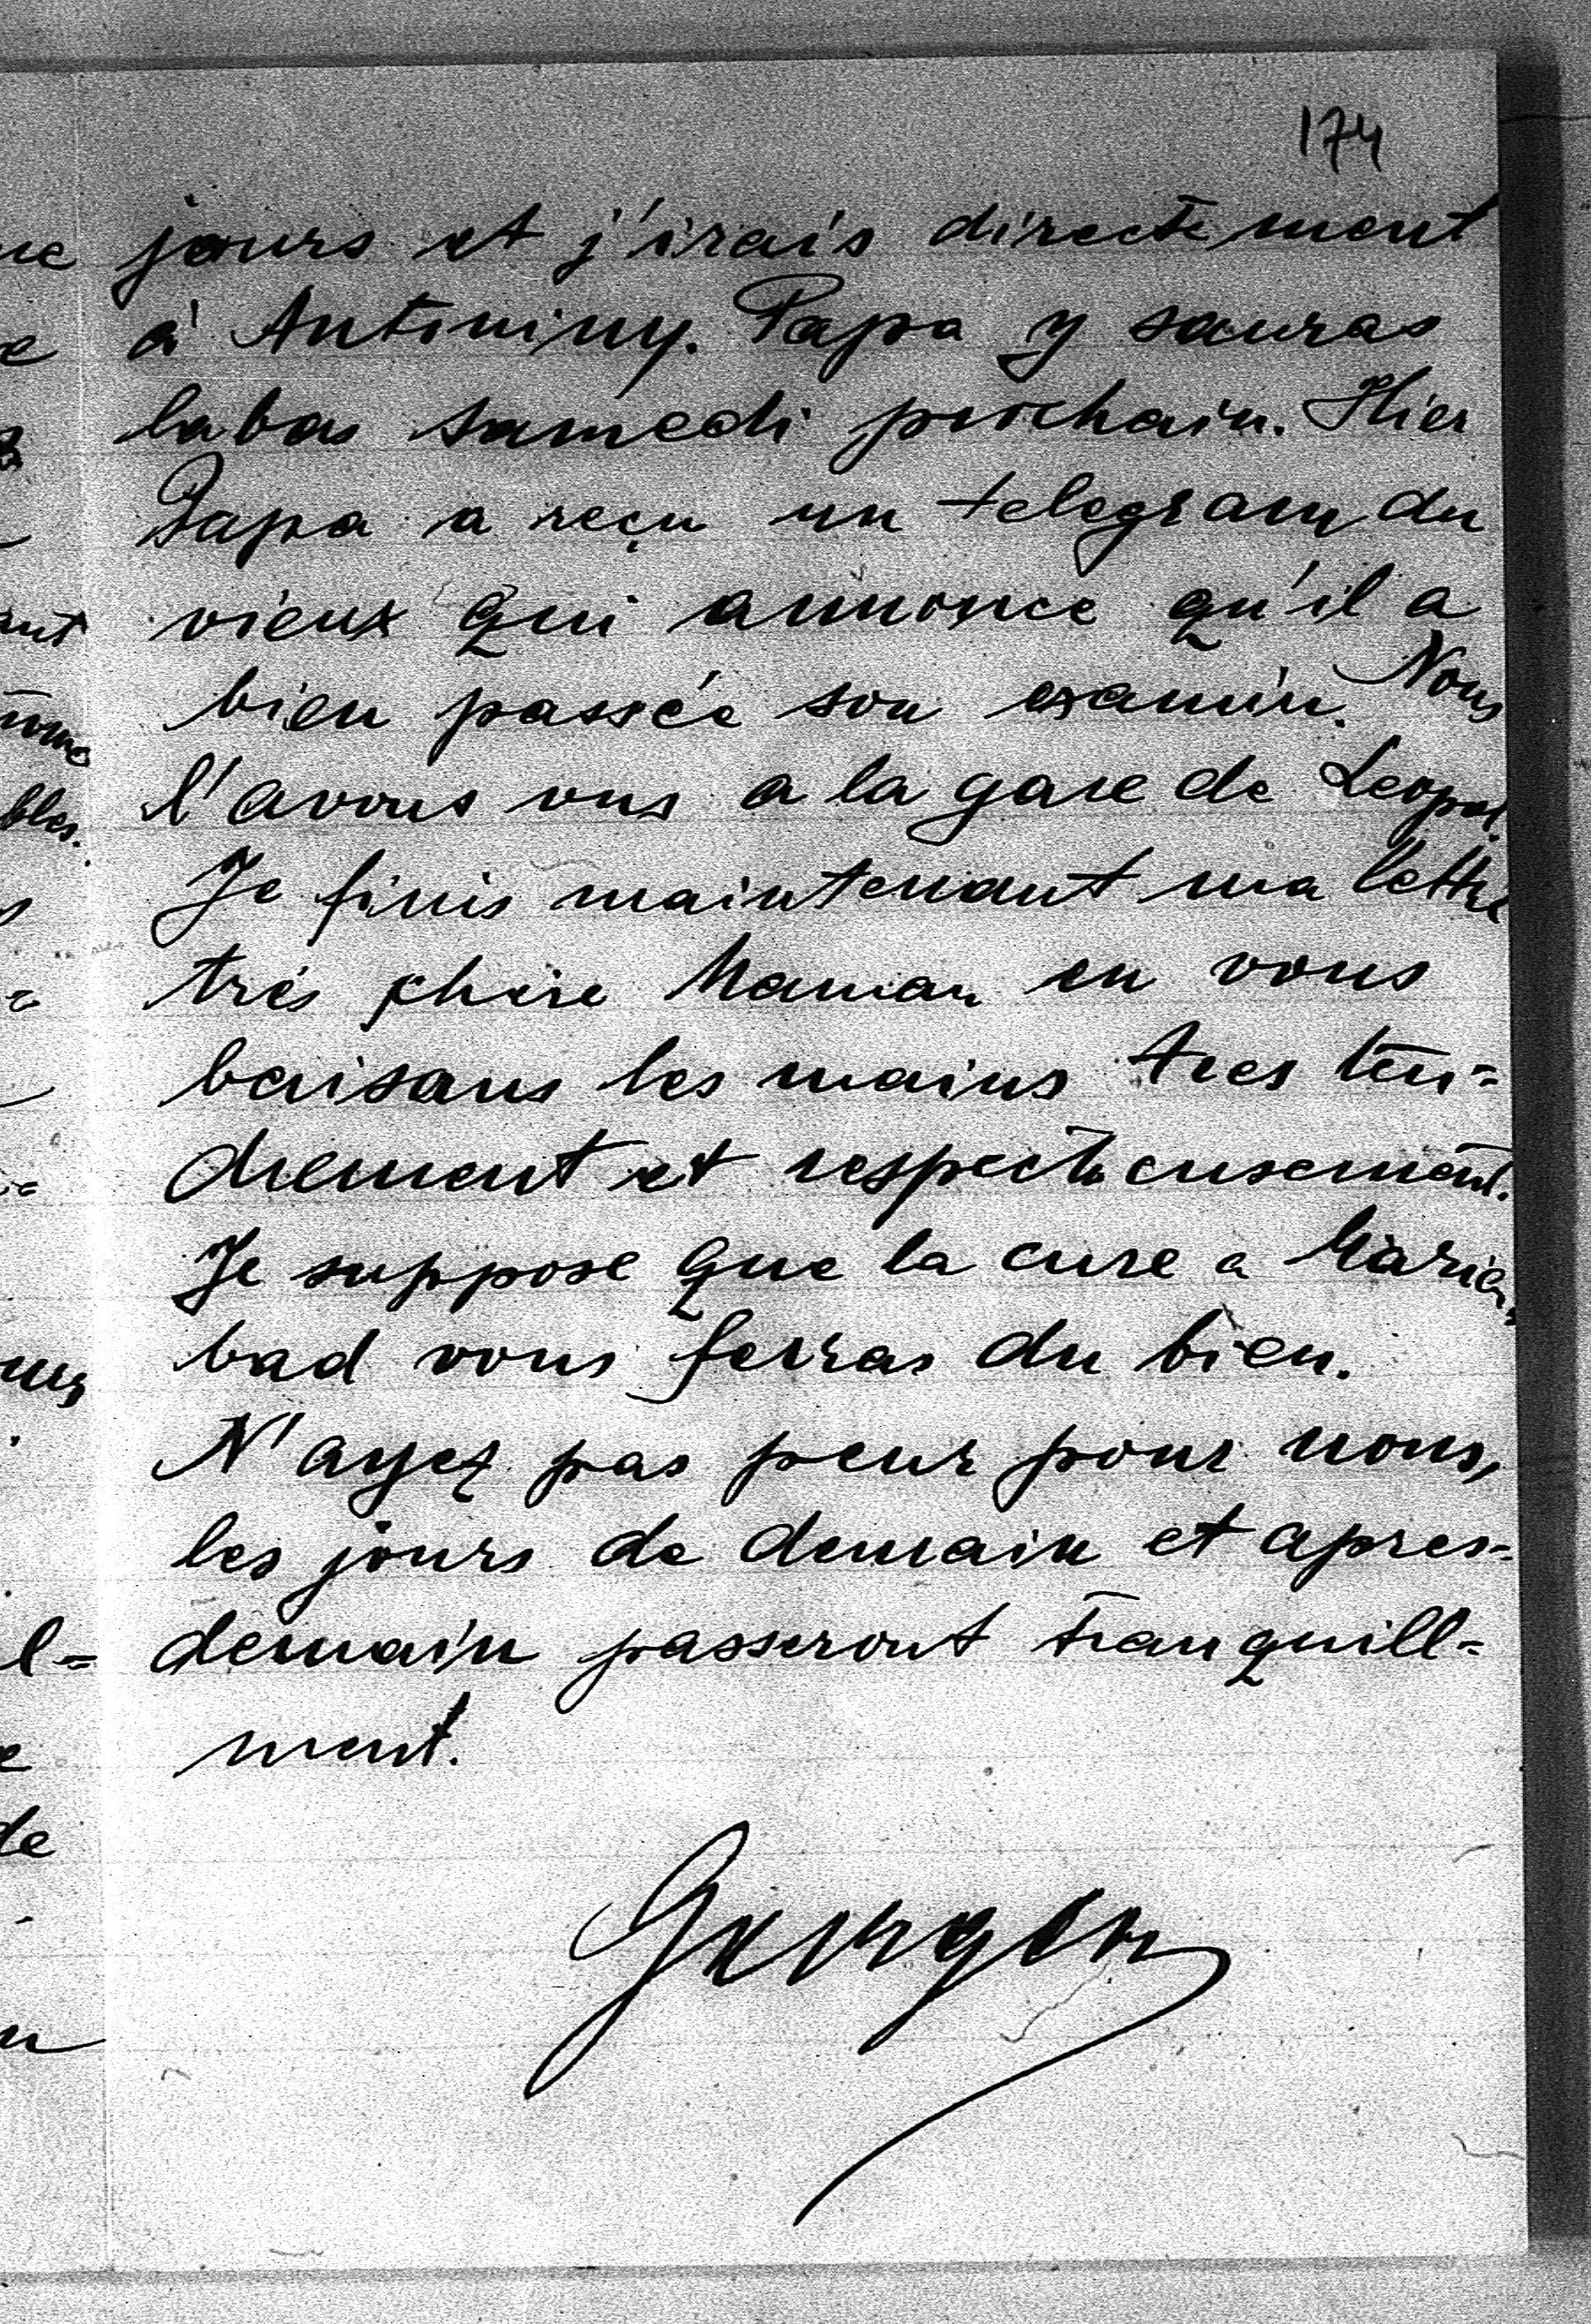 174
jours et j'irais directement
à Antoniny. Papa y sauras
labas samedi prochain. Hier
Papa a reçu un telegram du
vieux qui annonce qu'il a
bien passée son examin. Nous
l'avons vus a la gare de Leopol.
Je finis maintenant ma lettre
trés chère Maman en vous
baisans les mains tres ten=
drement et respectueusement.
Je suppose que la cure a Marien
bad vous ferras du bien.
N'ayez pas peur pour nous,
les jours de demain et apres-
demain passeront tranquill=
ment.